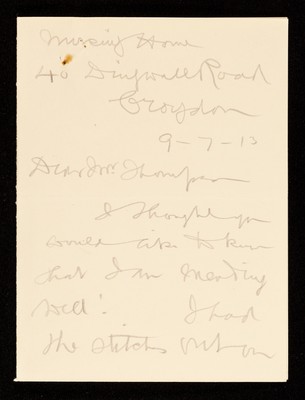 Nursing Home
40 Dingwall Road
Croydon
9-7-13
Dear Mr. Thompson
I thought you
would like to know
that I am mending
well! I had
the stitches out on